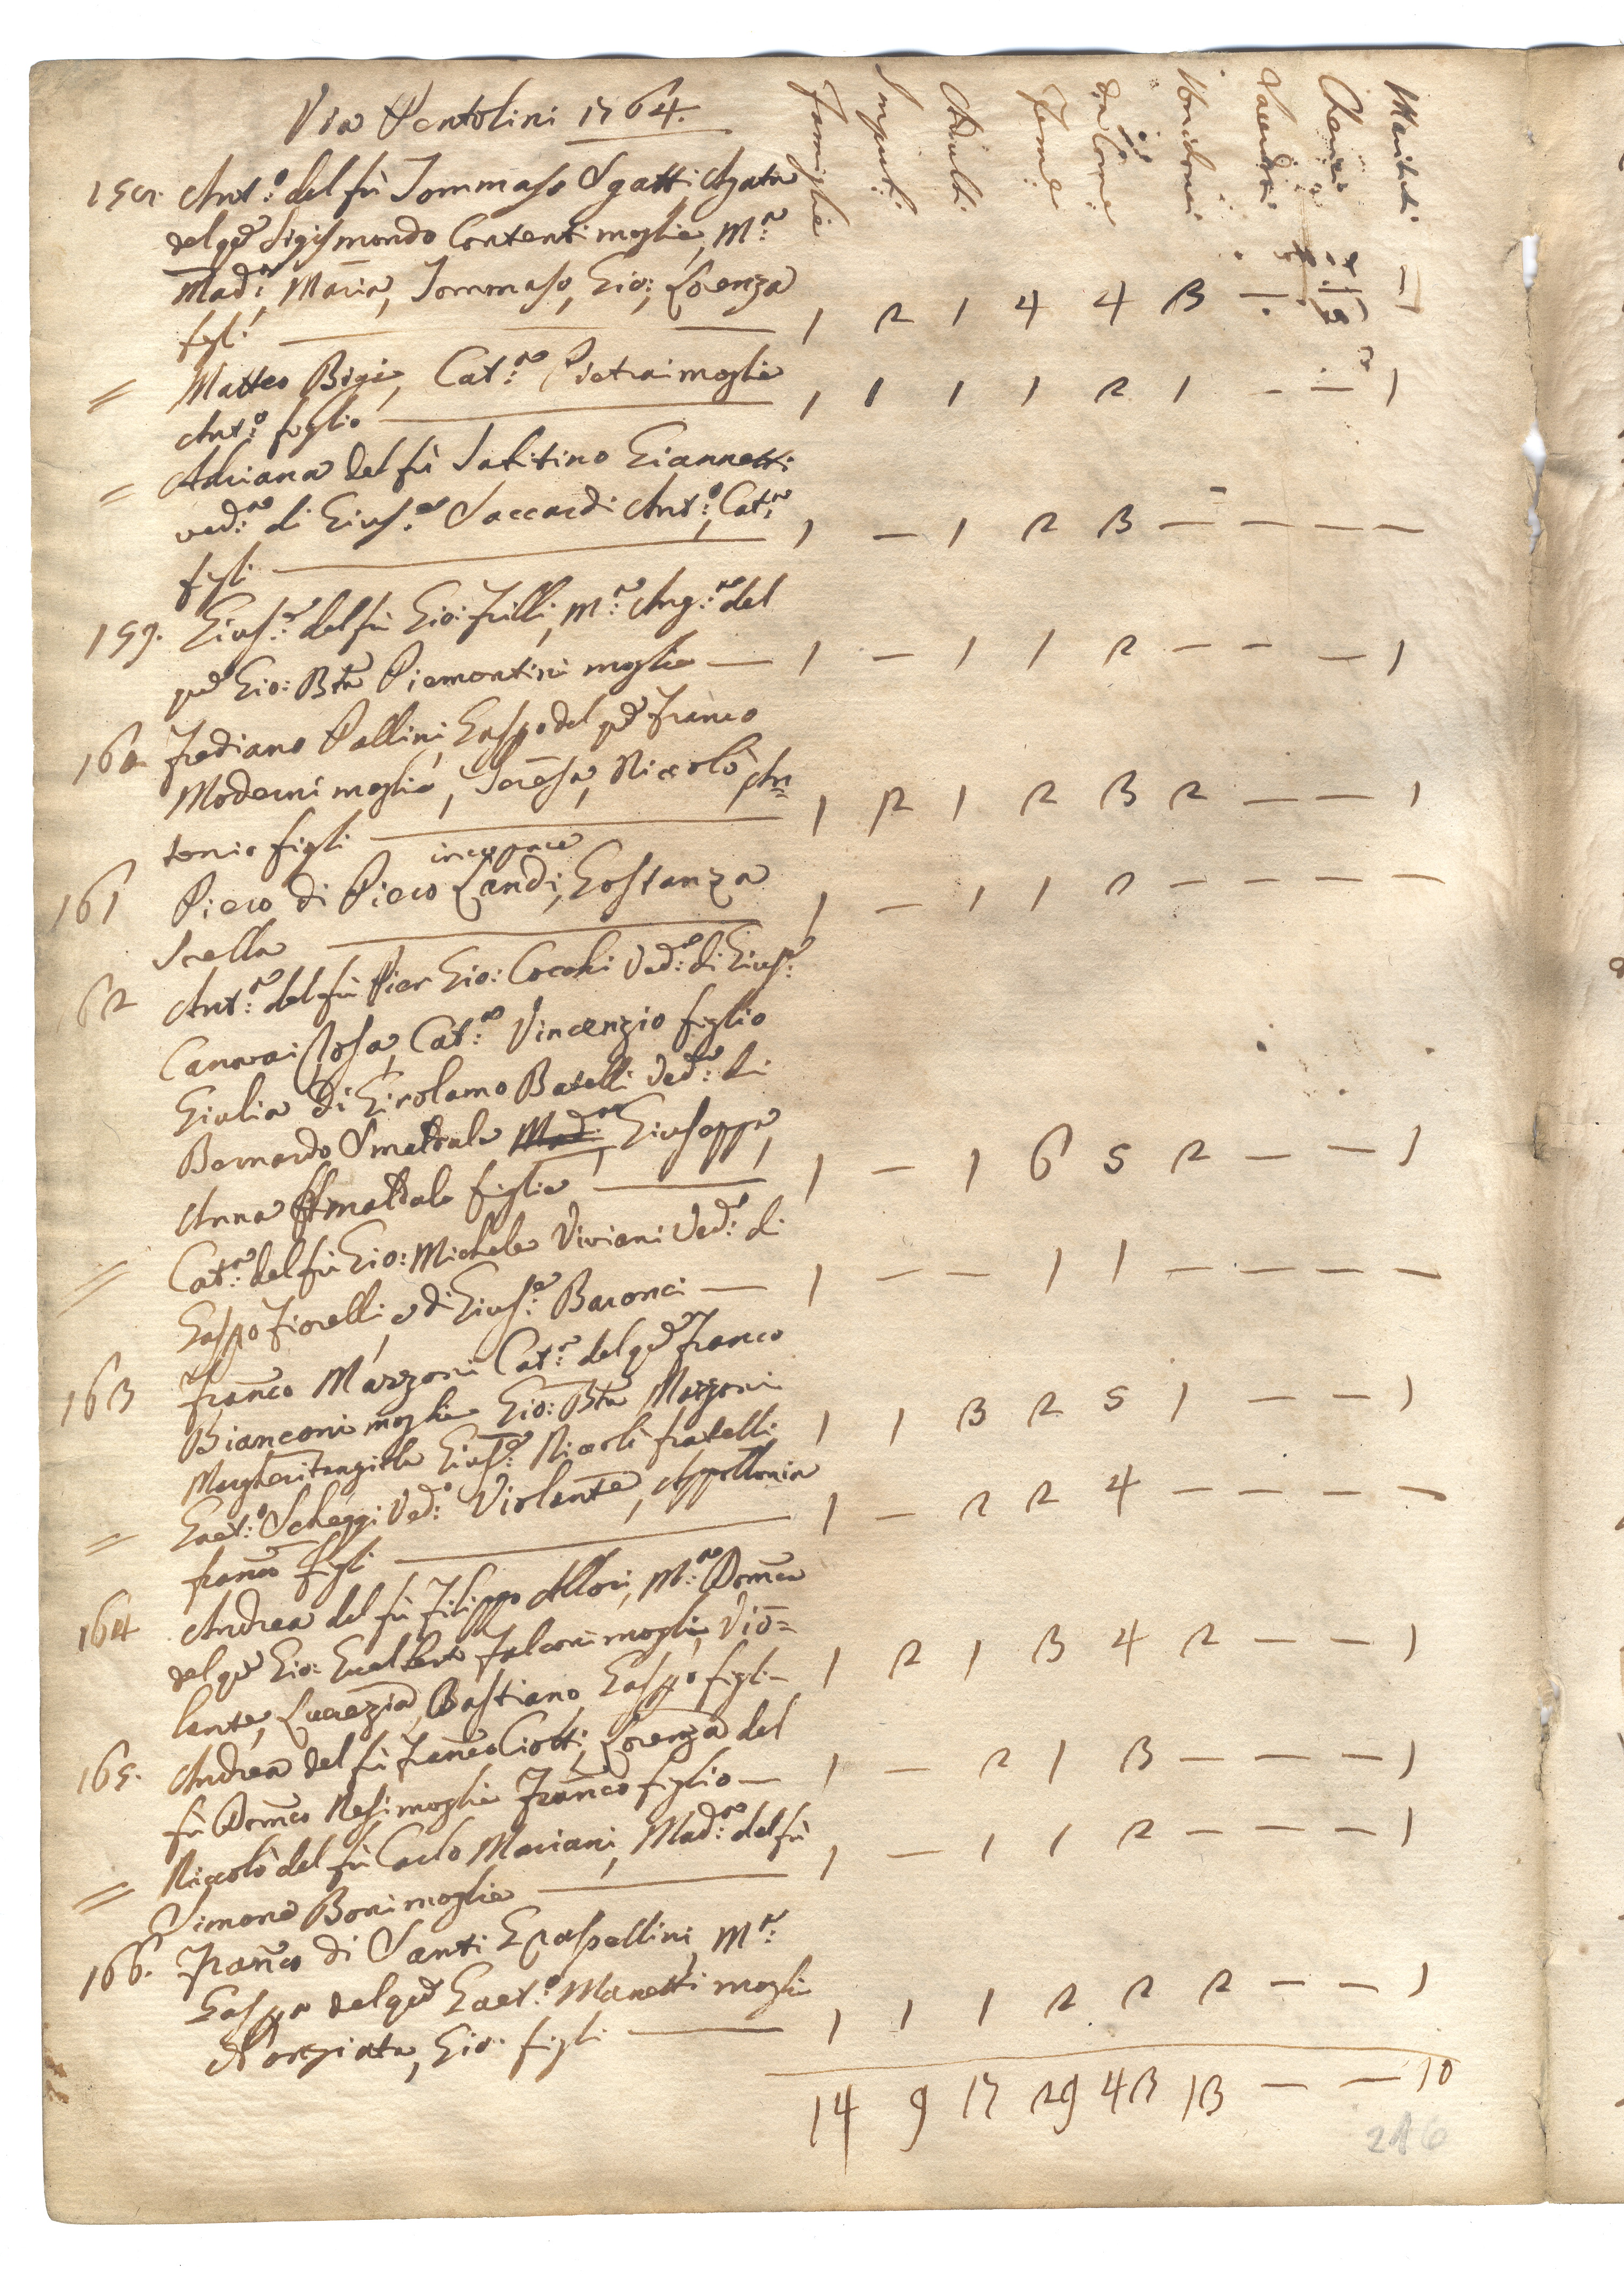 Via Pentolini 1764.
Famiglie Impuberi Adulti Femine da Com.e non da Com.e Sacerdoti Cherici Mariti
158. Ant.o del fù Tommaso Sgatti Agata
del qm Sigismondo Contenti moglie, M.a
Mad.a Maria, Tommaso, Gio:, Lorenza
figli — 1 2 1 4 4 3 — — 1
= Matteo Bigi, Cat.a Pietrai moglie
Ant.o figlio — 1 1 1 1 2 1 — — 1
= Adriana del fù Sabitino Giannetti
ved.a di Gius.e Saccardi Ant.o, Cat.a
figli — 1 — 1 2 3 — — — —
159. Gius.e del fù Gio: Frilli, M.a Ang.a del
qm Gio: Bta Piemontini moglie — 1 — 1 1 2 — — — 1
160 Frediano Pallini, Gaspa del qm Franco
Moderni moglie, Teresa, Niccolò An=
tonio figli — 1 2 1 2 3 2 — — 1
incapace
161 Piero di Piero Landi, Gostanza
Sorella — 1 — 1 1 2 — — — —
62 Ant.a del fù Pier Gio: Cocchi Ved.a di Gius.e
Canovai Rosa, Cat.a Vincenzio figlio
Giulia di Girolamo Batelli Ved.a di
Bernardo Smeldale Mad.a Giuseppa,
Anna Smaldale figlie — 1 — 1 6 5 2 — — 1
= Cat.a del fù Gio: Michele Viviani Ved.a di
Gaspo Fiorelli, e di Gius.e Baronci — 1 — — 1 1 — — — —
163 Franco Marzoni Cat.a del qm Franco
Bianconi moglie Gio: Bta Marzoni
Margheritangiola Gius.e Niccolò fratelli 1 1 3 2 5 1 — — 1
= Gaet.o Scheggi Ved.o Violante, Appollonia
Franco figli — 1 — 2 2 4 — — — —
164 Andrea del fù Filippo Allori, M.a Domca
del qm Gio: Gualberto Falconi moglie, Vio=
lante, Lucrezia, Bastiano, Gaspo figli — 1 2 1 3 4 2 — — 1
165. Andrea del fù Franco Ciotti, Lorenza del
fù Domco Nesi moglie Franco figlio — 1 — 2 1 3 — — — 1
= Niccolò del fù Carlo Mariani, Mad.a del fù
Simone Boni moglie — 1 — 1 1 2 — — — 1
166. Franco di Santi Graspellini, M.a
Gaspa del qm Gaet.o Manetti moglie
Norgiata, Gio: figli — 1 1 1 2 2 2 — — 1
14 9 17 29 43 13 — — 10
216